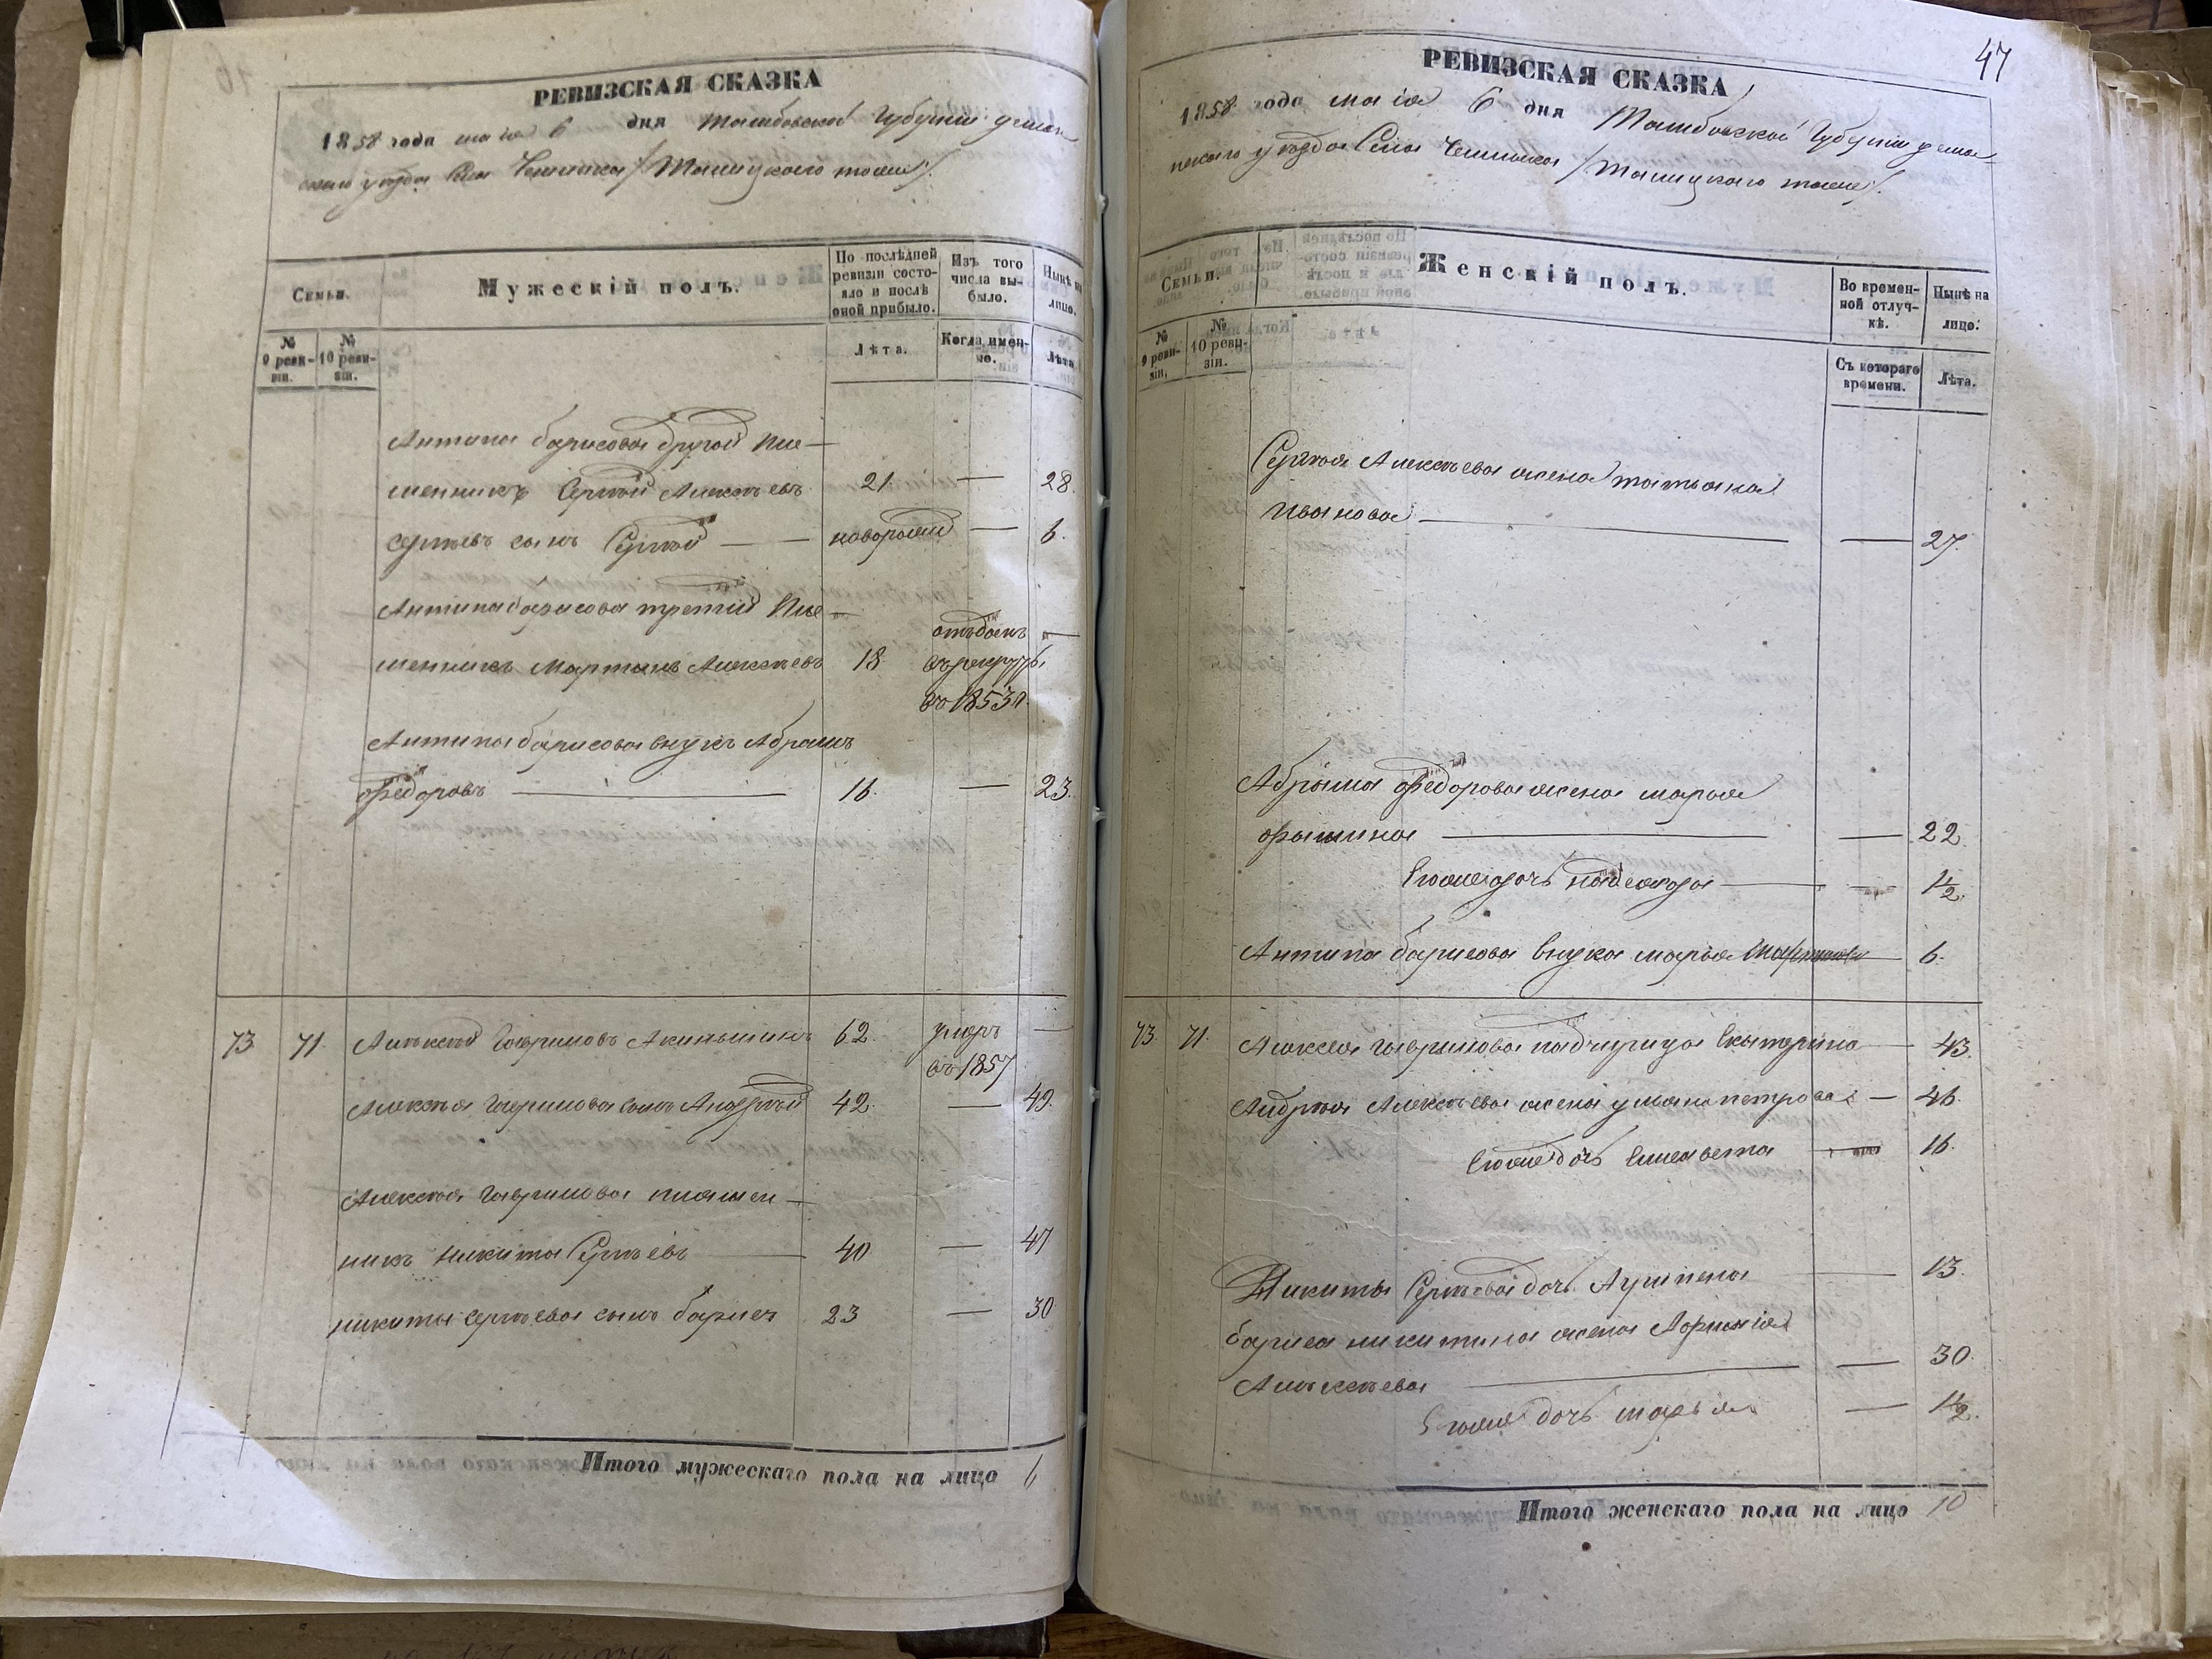 РЕВИЗСКАЯ СКАЗКА
1858 года маiя 6 дня Тамбовской Губернiи усман
скаго уезда Села /Талицкаго тожъ/.
Семьи.
Мужескiй полъ.
По послѣдней ревизiи состояло и послѣ оной прибыло.
Изъ того числа выбыло.
Нынѣ на лицо.
№ 9 ревизiи.
№ 10 ревизiи.
Лѣта.
Когда именно.
Лѣта
Антипа барисова другой пле—
менникъ Сергѣй Алексѣевъ 21 — 28.
сергѣевъ сынъ Сергѣй — — новорожд — 6.
Антипа барисова третiй пле—
менникъ Мартинъ Алексѣевъ 18. отъданъ
въ рекруты —
въ 1853 г.
Антипа барисова внукъ Абрамъ
Федоровъ — 16. — 23.
73 71. Алексѣй Гавриловъ Акиньшинъ 62. умеръ —
въ 1857
Алексѣя Гаврилова сынъ Андрѣй 42. — 49.
Алексѣя Гаврилова племен—
никъ Никита Сергѣевъ — 40 — 47
никиты сергѣева сынъ барисъ 23 — 30
Итого мужескаго пола на лицо 6
47
РЕВИЗСКАЯ СКАЗКА
1858 года маiя 6 дня Тамбовской Губернiи усма
нскаго уезда Села /Талицкаго тожъ/.
Семьи.
Женскiй полъ.
Во временной отлучкѣ.
Нынѣ на лицо.
№ 9 ревизiи.
№ 10 ревизiи.
Съ котораго времени.
Лѣта.
Сергѣя Алексѣева жена татьяна
Иванова — — 27.
Абрама Федорова жена марья
фомина — — 22.
Ево же дочь надежда — — 1½.
Антипа барисова внука марья — 6.
73 71. Алексѣя гаврилова падчерица Екатерина — 43.
Андрѣя Алексѣева жена ульяна петрова — 46.
Ево же дочь Елисавета — 16.
Никиты Сергѣева дочь Агрипена — 13.
бариса никитина жена Афимiя
Алексѣева — — 30.
Ево же дочь марья — 1½.
Итого женскаго пола на лицо 10